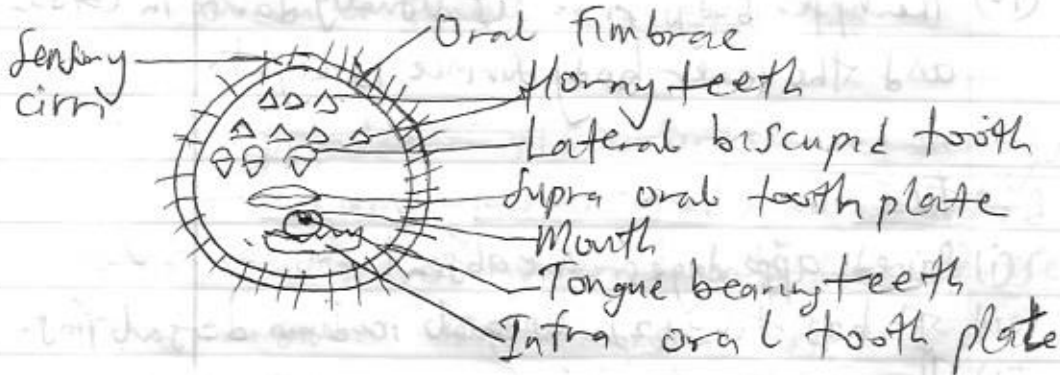 Sensory cirri
Oral Fimbrae
Horny teeth
Lateral biscupid tooth
Supra oral tooth plate
Mouth
Tongue bearing teeth
Infra oral tooth plate